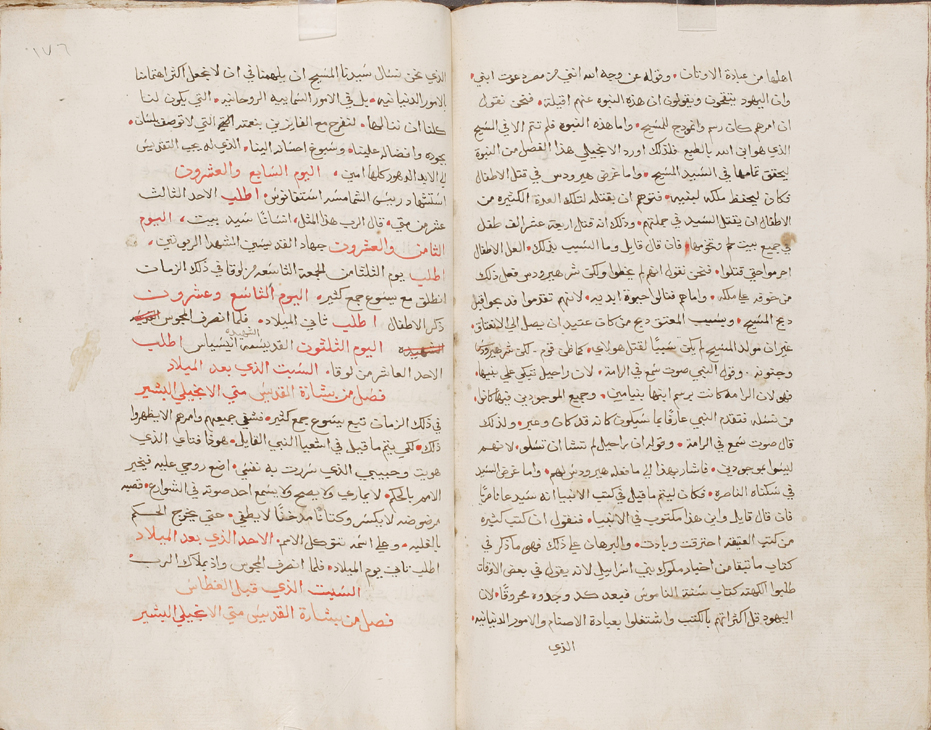 اهلها من عبادة الاوتان • وقوله عن وجه الله انني من مصر دعوت ابني •
وان اليهود يتقحون ويقولون ان هذه النبوه عنهم اقيلة • فنحن نقول
ان امرهم كان رسم وانموذج للمسيح • واما هذه النبوه فلم تتم الا في السيح
الذي هو ابن الله بالطبع فلذلك اورد الانجيلي هذا الفصل من النبوة
ليحقق تمامها في السيد المسيح • واما غرض هيرودس في قتل الاطفال
فكان ليحفظ ملكه لبنيه • فتوهم ان بقتله لتلك العدة الكثيره من
الاطفال ان يقتل السيد في جملتهم • وذلك انه قتل اربعة عشر الف طفل
في جميع بيت لحم وتخومها • فان قال قايل وما السبب بذلك • العل الاطفال
اجرموا حتي قتلوا • فنحن نقول انهم لم يخطوا ولكن شر هيرودس فعل ذلك
من خوفه علي ملكه • واما هم فنالو حيوة ابديه • لانهم تقدموا قد
المسيح • وبسبب من كان عتيد ان يصل الي الانعتاق •
غير ان مولد المسيح لم يكن سببا لقتل هولاي • كما ظن قوم • لكن شر هيرودس
وجنونه • وقول النبي صوت سمع في الرامة • لان راحيل تبكي علي بنيها •
فهو لان الرامه كانت برسم ابنها بنيامين • وجميع الموجودين فيها كانوا
من نسله • فتقدم النبي عارفا بما سيكون كانه قد كان وعبر • ولذلك
قال صوت سمع في الرامة • وقوله ان راحيل لم تشا ان تسلو • لانهم
ليسوا بموجودين • فاشار بهذا الي ما فعله هيرودس بهم • واما غرض السيد
في سكناه الناصره • فكان ليتم ما قيل في كتب الانبيا انه سيدعا ناصريا
فان قال قايل واين هذا مكتوب في الانبيا • فنقول ان كتب كثيره
من كتب العتيقه احترقت وبادت • والبرهان علي ذلك فهو ما ذكر في
كتاب ما تبقا من اخبار ملوك بني اسراييل لانه يقول في بعض الاوقات
طلبوا الكهنه كتاب سنة الناموس فبعد كد وجدوه محروقا • لان
اليهود قل اكتراتهم بالكتب واشتغلوا بعبادة الاصنام والامور الدنيانيه •
الذي
١٧٦
الذي نحن نسال سيدنا المسيح ان يلهمنا في ان لا نجعل اكثر اهتمامنا
بالامور الدنيانيه • بل في الامور السماييه الروحانيه • التي يكون لنا
كلنا ان ننالها • لنفرح مع الفايزين بنعمته التي لا توصف بلسان •
بجوده وافضاله علينا • وسبوغ احسانه الينا • الذي له يجب التقديس
الي الابد الدهور كلها امين • اليوم السابع والعشرون
استشهاد رييس الشمامسه استفانوس • اطلب الاحد الثالث
عشر من متي • قال الرب هذا المثل • انسانا سيد بيت • اليوم
الثامن والعشرون جهاد القديسين الشهدا الربوتين •
اطلب يوم الثلثا من الجمعة التاسعه من لوقا في ذلك الزمان
انطلق مع يسوع جمع كثير • اليوم التاسع وعشرون
ذكر الاطفال • اطلب ثاني الميلاد • فلما انصرف المجوس
اليوم الثلثون القديسه الشهيده انيسياس اطلب
الاحد العاشر من لوقا • السبت الذي بعد الميلاد
فصل من بشارة القديس متي الانجيلي البشير
في ذلك الزمان تبع يسوع جمع كثير • فشفي جميعهم وامرهم الا يظهروا
ذلك • لكي يتم ما قيل في اشعيا النبي القايل • هوذا فتاي الذي
هويت وحبيبي الذي سررت به نفسي • اضع روحي عليه فيخبر
الامم بالحكم • لا يماري ولا يصيح ولا يسمع احد صوته في الشوارع • قصبه
مرضوضه لا يكسر وكتانا مدخنا لا يطفي • حتي يخرج الحكم
بالغلبه • وعلي اسمه تتوكل الامم • الاحد الذي بعد الميلاد
اطلب ثاني يوم الميلاد • فلما انصرف المجوس واذ بملاك الرب
السبت الذي قبل الغطاس
فصل من بشارة القديس متي الانجيلي البشير